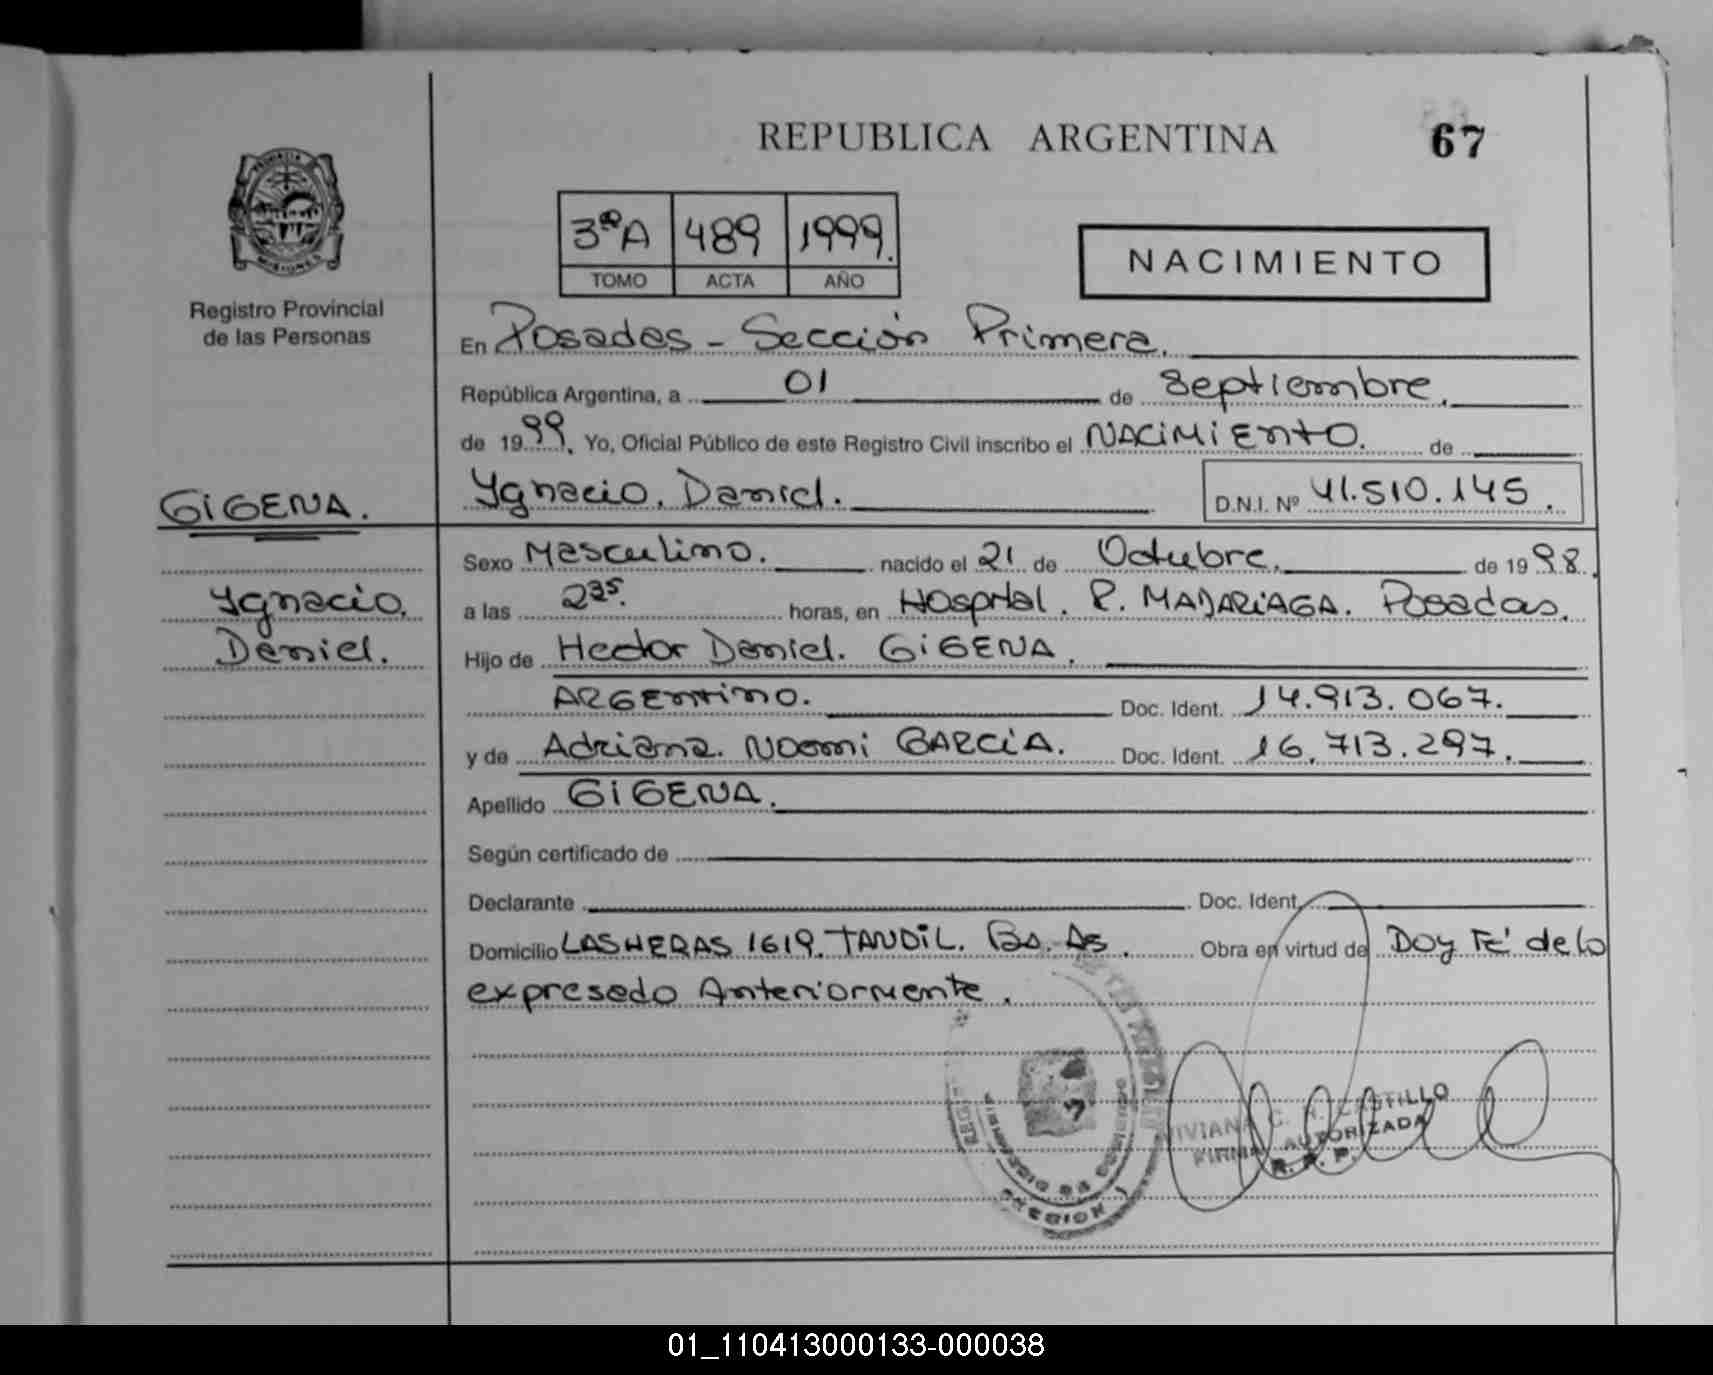 REPUBLICA ARGENTINA
67
PROVINCIA
MISIONES
Registro Provincial
de las Personas
3ºA 489 1999.
TOMO ACTA AÑO
NACIMIENTO
En Posadas - Sección Primera.
República Argentina, a 01 de Septiembre.
de 1999, Yo, Oficial Público de este Registro Civil inscribo el NACIMIENTO. de
GIGENA.
Ygnacio. Daniel. D.N.I. Nº 41.510.145.
Sexo Masculino. nacido el 21 de Octubre. de 1998.
Ygnacio.
a las 2³⁵. horas, en Hospital. R. MADARIAGA. Posadas.
Daniel.
Hijo de Hector Daniel. GIGENA.
ARGENTINO. Doc. Ident. 14.913.067.
y de Adriana. Noemi GARCIA. Doc. Ident. 16.713.297.
Apellido GIGENA.
Según certificado de
Declarante Doc. Ident.
Domicilio LAS HERAS 1619. TANDIL. Bs. As. Obra en virtud de Doy Fé de lo
expresado Anteriormente.
VIVIANA C. CASTILLO
FIRMA AUTORIZADA
R. P. P.
MINISTERIO DE GOBIERNO
SECCION 1
01_110413000133-000038